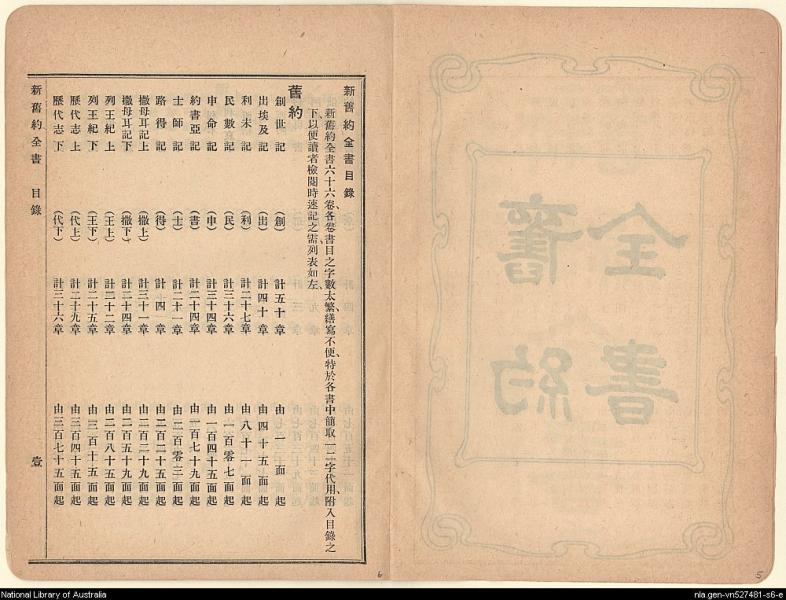 新舊約全書目錄
新舊約全書六十六卷、各卷書目之字數太繁、繕寫不便、特於各書中簡取一二字代用、附入目錄之
下、以便讀者檢閱時速記之需、列表如左、
舊約
創世記 (創) 計五十章 由一面起
出埃及記 (出) 計四十章 由四十五面起
利未記 (利) 計二十七章 由八十一面起
民數記 (民) 計三十六章 由一百零七面起
申命記 (申) 計三十四章 由一百四十五面起
約書亞記 (書) 計二十四章 由一百七十九面起
士師記 (士) 計二十一章 由二百零三面起
路得記 (得) 計四章 由二百二十五面起
撒母耳記上 (撒上) 計三十一章 由二百二十九面起
撒母耳記下 (撒下) 計二十四章 由二百五十九面起
列王紀上 (王上) 計二十二章 由二百八十五面起
列王紀下 (王下) 計二十五章 由三百十五面起
歷代志上 (代上) 計二十九章 由三百四十五面起
歷代志下 (代下) 計三十六章 由三百七十五面起
新舊約全書 目錄 壹
全書
舊約
6
5
National Library of Australia
nla.gen-vn527481-s6-e